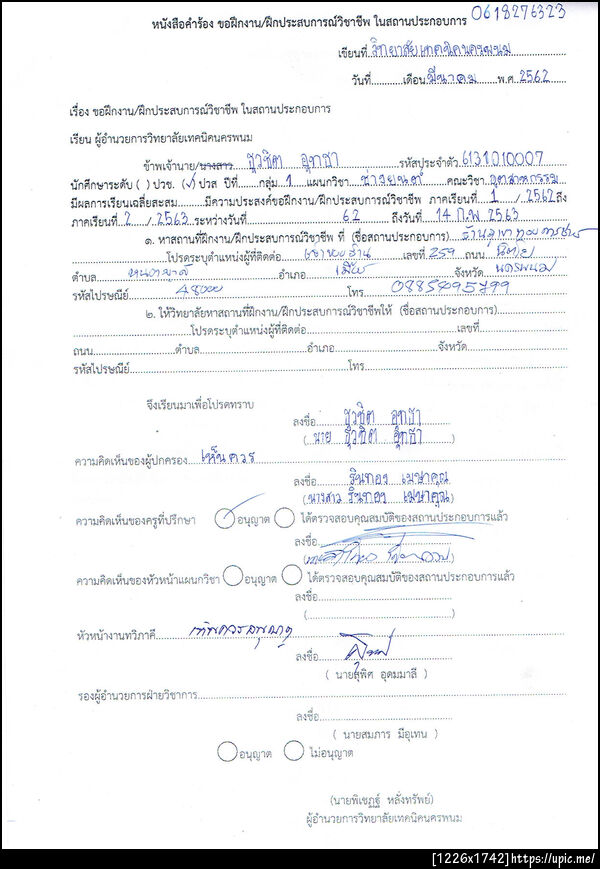 หนังสือคำร้อง ขอฝึกงาน/ฝึกประสบการณ์วิชาชีพ ในสถานประกอบการ 0618276323
เขียนที่ วิทยาลัยเทคนิคนครพนม
วันที่..........เดือน มีนาคม พ.ศ. 2562
เรื่อง ขอฝึกงาน/ฝึกประสบการณ์วิชาชีพ ในสถานประกอบการ
เรียน ผู้อำนวยการวิทยาลัยเทคนิคนครพนม
ข้าพเจ้านาย/นางสาว ธุวชิต อุทธา รหัสประจำตัว 6131010007
นักศึกษาระดับ ( ) ปวช. (✓) ปวส ปีที่........กลุ่ม 1 แผนกวิชา ช่างยนต์ คณะวิชา อุตสาหกรรม
มีผลการเรียนเฉลี่ยสะสม..........มีความประสงค์ขอฝึกงาน/ฝึกประสบการณ์วิชาชีพ ภาคเรียนที่ 1 / 2562 ถึง
ภาคเรียนที่ 2 / 2563 ระหว่างวันที่ 62 ถึงวันที่ 14 ก.พ 2563
๑. หาสถานที่ฝึกงาน/ฝึกประสบการณ์วิชาชีพ ที่ (ชื่อสถานประกอบการ)
โปรดระบุตำแหน่งผู้ที่ติดต่อ เจ้าของร้าน เลขที่ 259 ถนน นิตโย
ตำบล หนองญาติ อำเภอ เมือง จังหวัด นครพนม
รหัสไปรษณีย์ 48000 โทร 0885095799
๒. ให้วิทยาลัยหาสถานที่ฝึกงาน/ฝึกประสบการณ์วิชาชีพให้ (ชื่อสถานประกอบการ)..........
โปรดระบุตำแหน่งผู้ที่ติดต่อ..........เลขที่..........
ถนน..........ตำบล..........อำเภอ..........จังหวัด..........
รหัสไปรษณีย์..........โทร..........
จึงเรียนมาเพื่อโปรดทราบ
ลงชื่อ ธุวชิต อุทธา
( นาย ธุวชิต อุทธา )
ความคิดเห็นของผู้ปกครอง เห็นควร
ลงชื่อ รินทอง เมษาคุณ
(นางสาว รินทอง เมษาคุณ )
ความคิดเห็นของครูที่ปรึกษา อนุญาต ได้ตรวจสอบคุณสมบัติของสถานประกอบการแล้ว
ลงชื่อ
ความคิดเห็นของหัวหน้าแผนกวิชา อนุญาต ได้ตรวจสอบคุณสมบัติของสถานประกอบการแล้ว
ลงชื่อ..........
(..........)
หัวหน้างานทวิภาคี เห็นควรอนุญาต
ลงชื่อ
( นายสุพิศ อุดมมาลี )
รองผู้อำนวยการฝ่ายวิชาการ..........
ลงชื่อ..........
( นายสมภาร มีอุเทน )
อนุญาต ไม่อนุญาต
(นายพิเชฏฐ์ หลั่งทรัพย์)
ผู้อำนวยการวิทยาลัยเทคนิคนครพนม
[1226x1742]https://upic.me/